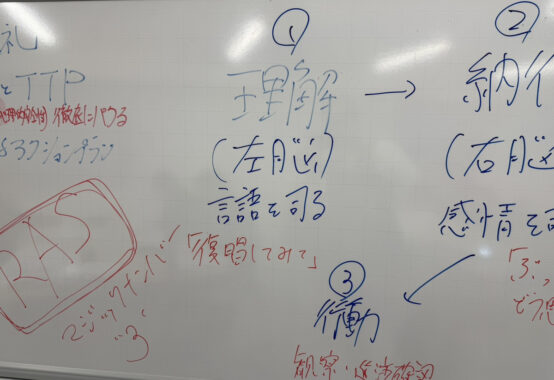 礼
とTTP
徹底的にパクる
アクションプラン
RAS
マジックナンバー
"3"
①
理解
→
(左脳)
言語を司る
「復唱してみて」
②
納得
(右脳
感情を司
「ぶっ
どう思
③
行動
観察・進捗確認